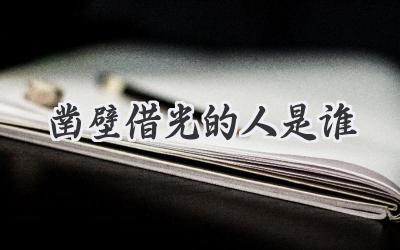 凿壁借光的人是谁